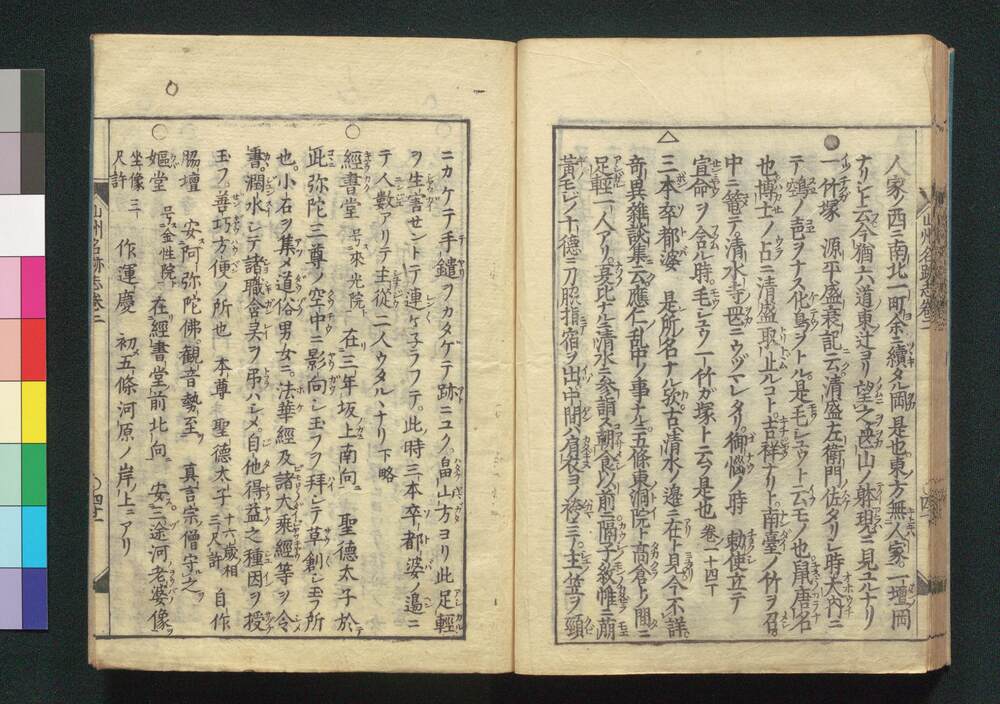 人家ノ西三南北一町余ニ續タル岡是也東方無人家一壇岡
ナリシト云今猶六道ノ東辻ヨリ望之ヲ夷山ノ躰現ニ見ユルナリ
一竹塚 源平盛衰記云清盛左衛門佐タリシ時大内ニ
テ鵼ノ声ヲナス化鳥ヲトル是毛シュウト云モノ也鼠唐名
也博士ノ占ニ清盛取止ルコト吉祥ナリト南臺ノ竹ヲ召
中ニ篭テ清水寺岡ニウヅマレタリ御惱ノ時 勅使立テ
宣命ヲ含ル時毛シュウ一竹ガ塚ト云フ是也 巻一十四丁
三本卒都婆 是所名ナル歟古清水ノ邉ニ在ト見今不詳
奇異雑談集云應仁乱中ノ事ナルニ五條東洞院ト高倉トノ間ニ
足軽一人アリ妻比丘清水ニ参詣ス朝食以前ニ帷子単帷ニ萠
黄毛シノ十徳ニ刀脇指宿ヲ出中間ハ肩衣ヨハ袴ニテ主笠ヲ頸
ニカケテ手鑓ヲカタゲテ跡ニユク畠山方ヨリ此足輕
ヲ生害セントテ連々子ラフテ此時三本卒都婆邉ニ
テ人數アリテ主從二人ウタルヽナリ下略
經書堂 号来光院 在三年坂上南向 聖徳太子於
此弥陀三尊ノ空中ニ影向シ玉フヲ拜シテ草創シ玉フ所
也小石ヲ集メ道俗男女ニ法華經及諸大乘經等ヲ令
書澗水シテ諸職含㚑ヲ吊ハシメ自他得益之種因ヲ授
玉フ善巧方便ノ所也 本尊 聖徳太子 十六歳相三尺許 自作
脇壇 安阿弥陀佛観音勢至 真言宗僧守之
嫗堂 号金性院 在經書堂前北向 安三途河老婆像
坐像三尺許 作運慶 初五條河原ノ岸上ニアリ
山州名跡志巻二
四十
山州名跡志巻二